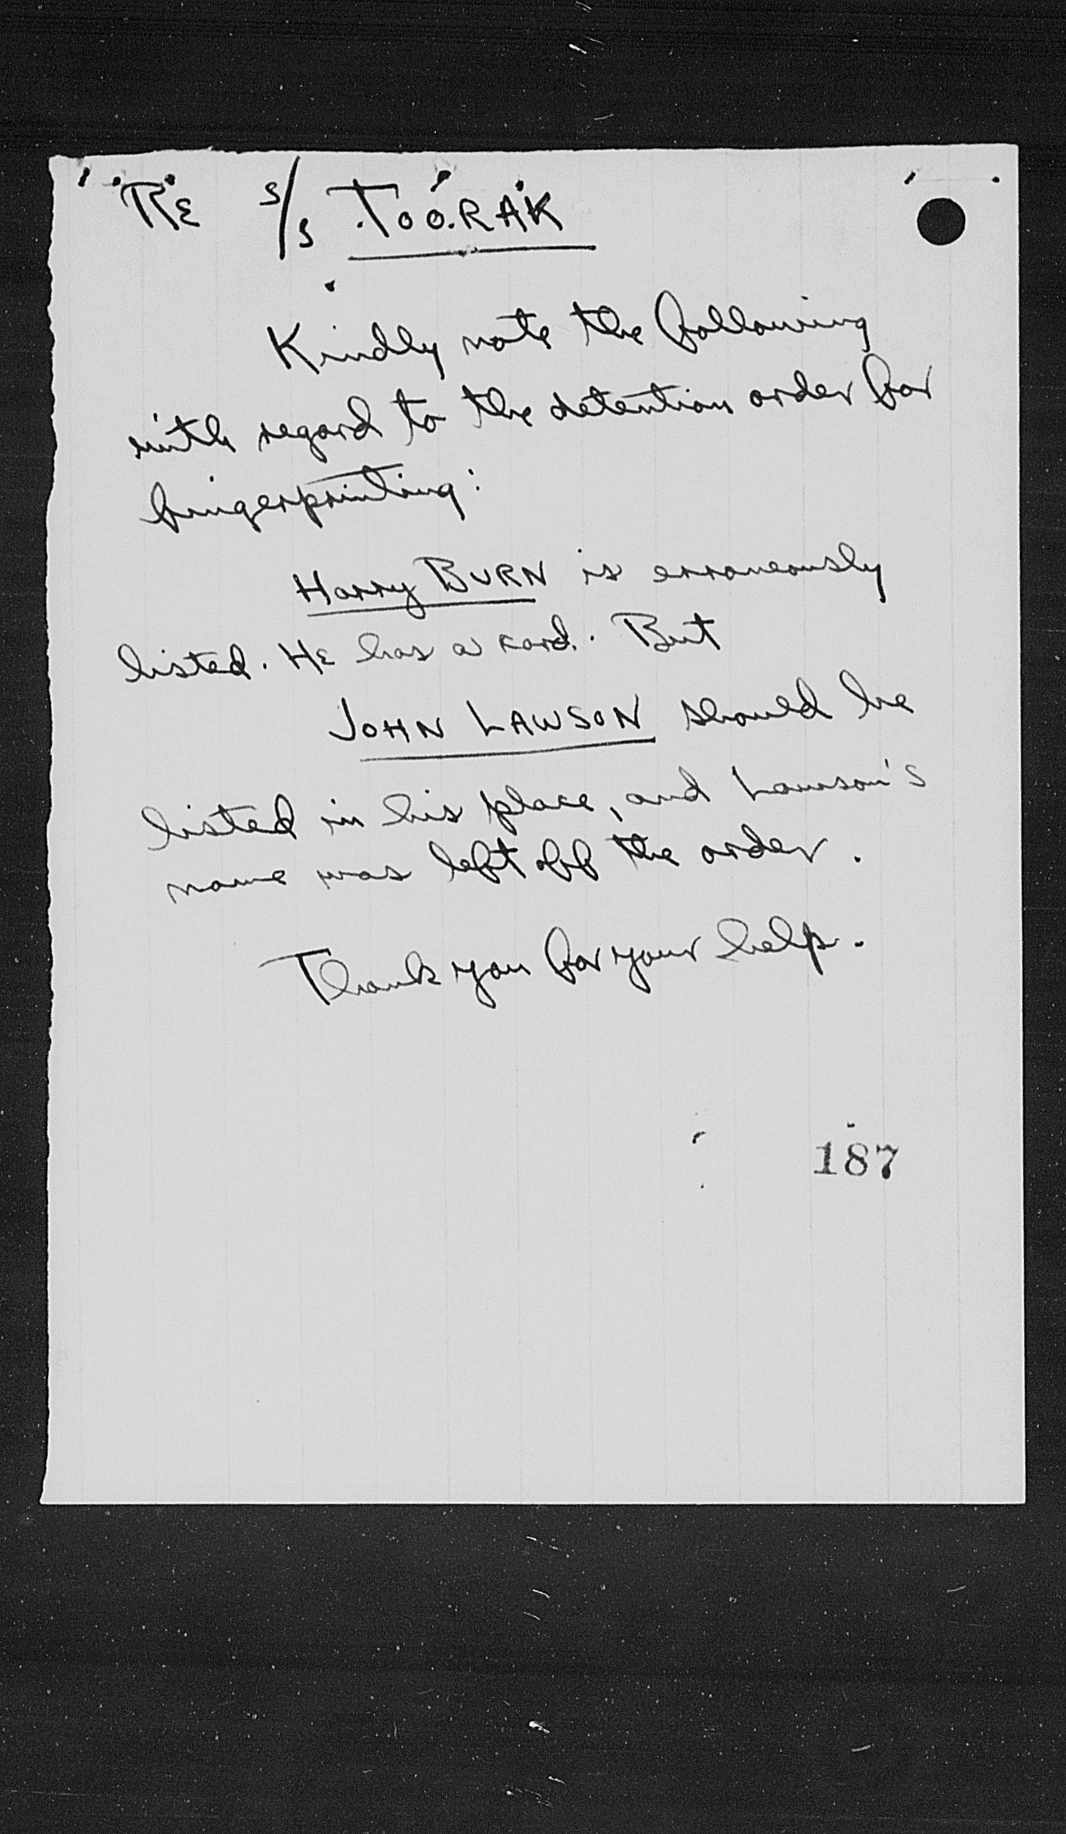 RE S/S TOORAK
Kindly note the following
with regard to the detention order for
fingerprinting:
Harry BURN is erroneously
listed. He has a card. But
JOHN LAWSON should be
listed in his place, and Lawson's
name was left off the order.
Thank you for your help.
187